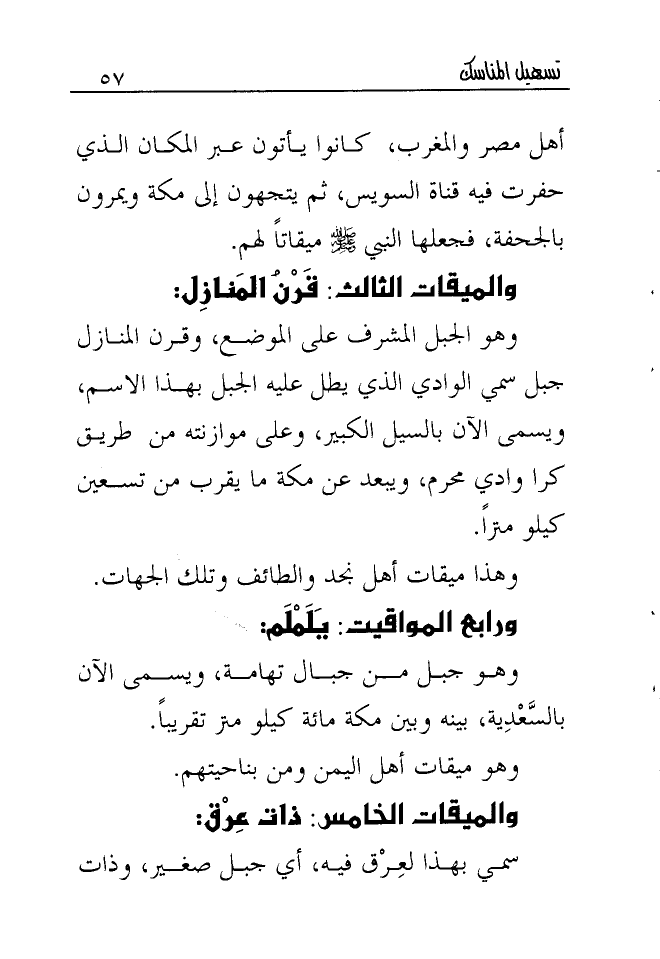 تسهيل المناسك
٥٧
أهل مصر والمغرب، كانوا يأتون عبر المكان الذي
حفرت فيه قناة السويس، ثم يتجهون إلى مكة ويمرون
بالجحفة، فجعلها النبي ﷺ ميقاتاً لهم.
والميقات الثالث: قَرْنُ المَنازِل:
وهو الجبل المشرف على الموضع، وقرن المنازل
جبل سمي الوادي الذي يطل عليه الجبل بهذا الاسم،
ويسمى الآن بالسيل الكبير، وعلى موازنته من طريق
كرا وادي محرم، ويبعد عن مكة ما يقرب من تسعين
كيلو متراً.
وهذا ميقات أهل نجد والطائف وتلك الجهات.
ورابع المواقيت: يَلَمْلَم:
وهو جبل من جبال تهامة، ويسمى الآن
بالسَّعْدِية، بينه وبين مكة مائة كيلو متر تقريباً.
وهو ميقات أهل اليمن ومن بناحيتهم.
والميقات الخامس: ذات عِرْق:
سمي بهذا لعِرْق فيه، أي جبل صغير، وذات